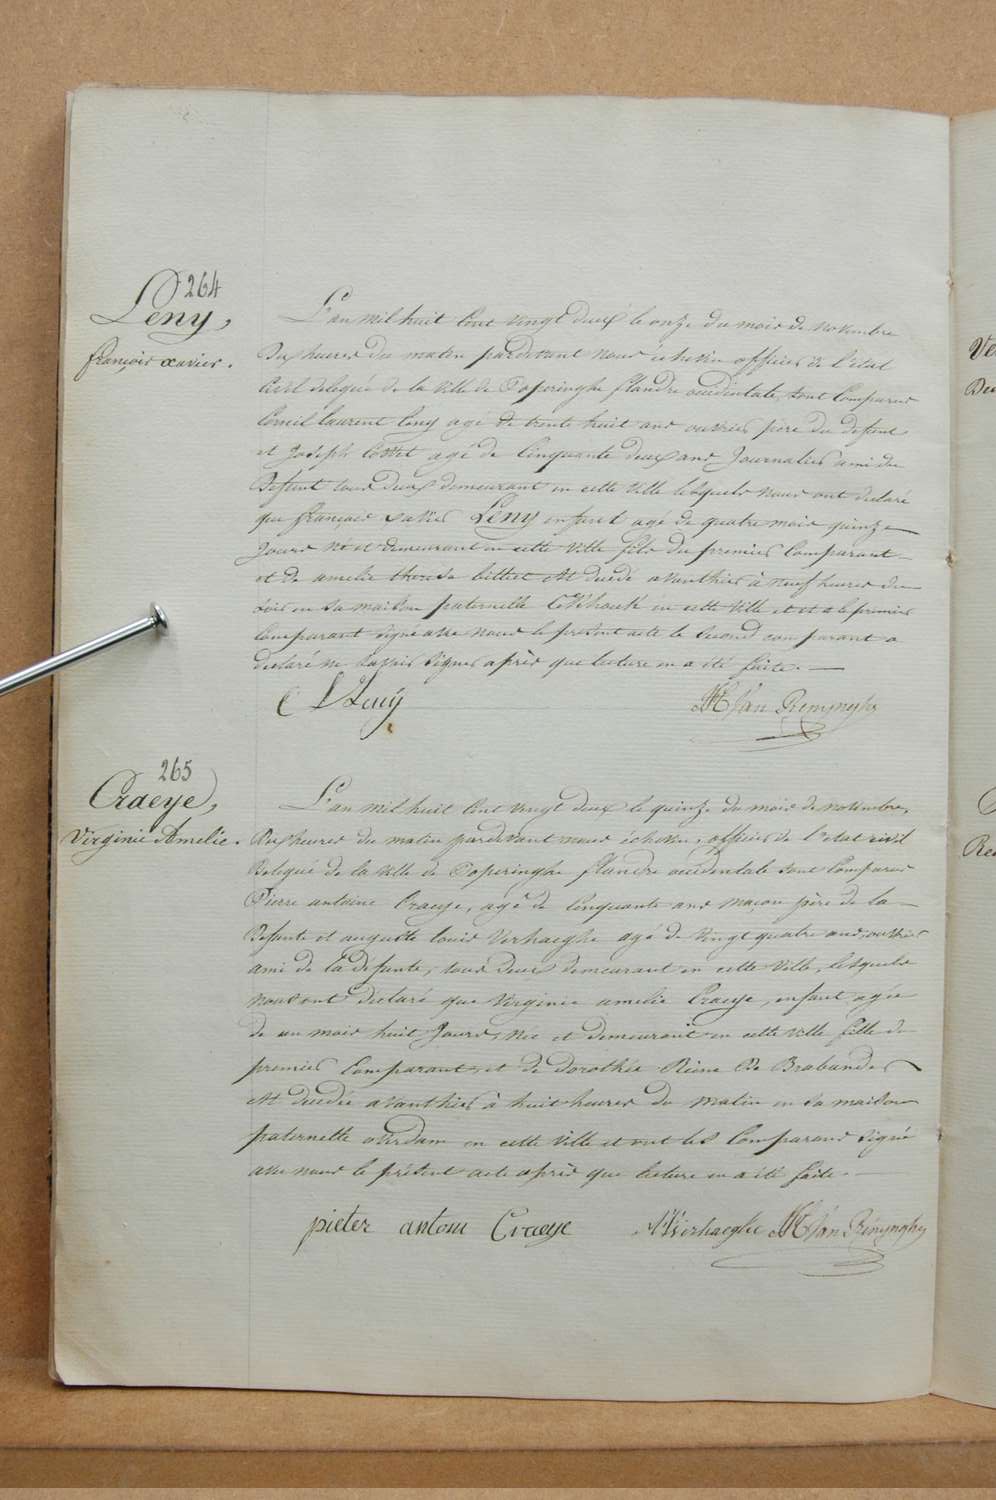 264
Leny,
françois xavier.
L'an mil huit cent vingt deux le onze du mois de novembre
dix heures du matin pardevant nous échevin officier de l'état
civil delegué de la ville de Poperinghe flandre occidentale sont comparus
Corneil laurent Leny agé de trente huit ans ouvrier père du defunt
et Joseph agé de cinquante deux ans Journalier ami du
defunt tous deux demeurant en cette ville lesquels nous ont declaré
que françois xavier Leny enfant agé de quatre mois quinze
Jours né et demeurant en cette ville fils du premier comparant
et de amelie therese billiet est décédé avanthier à neuf heures du
soir en sa maison paternelle en cette ville et et a le premier
comparant signé avec nous le present acte le second comparant a
declaré ne savoir signer après que lecture en a été faite.
C L Leny
Van Renynghe
265
Craeye,
Virginie Amelie.
L'an mil huit cent vingt deux le quinze du mois de novembre,
dix heures du matin pardevant nous échevin, officier de l'etat civil
delegué de la ville de Poperinghe flandre occidentale sont comparus
Pierre antoine Craeye, agé de cinquante ans maçon père de la
defunte et auguste louis Verhaeghe agé de vingt quatre ans, ouvrier
ami de la defunte, tous deux demeurant en cette ville, lesquels
nous ont déclaré que Virginie amelie Craeye, enfant, agée
de un mois huit Jours, née et demeurant en cette ville fille du
premier comparant, et de dorothée Reine De Brabander
est décédée avanthier à huit heures du matin en sa maison
paternelle overdam en cette ville et ont les comparans signé
avec nous le présent acte après que lecture en a été faite.
pieter antoni Craeye
Verhaeghe
Van Renynghe